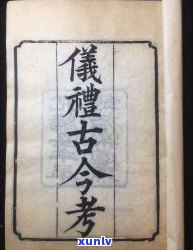 儀禮古今考
xunlv